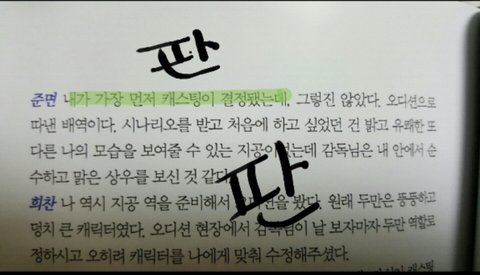 판
준면 내가 가장 먼저 캐스팅이 결정됐는데, 그렇진 않았다. 오디션으로
따낸 배역이다. 시나리오를 받고 처음에 하고 싶었던 건 밝고 유쾌한 또
다른 나의 모습을 보여줄 수 있는 지공이었는데 감독님은 내 안에서 순
수하고 맑은 상우를 보신 것 같다.
판
희찬 나 역시 지공 역을 준비해서 봤다. 원래 두만은 뚱뚱하고
덩치 큰 캐릭터였다. 오디션 현장에서 감독님이 날 보자마자 두만 역할로
정하시고 오히려 캐릭터를 나에게 맞춰 수정해주셨다.
캐스팅